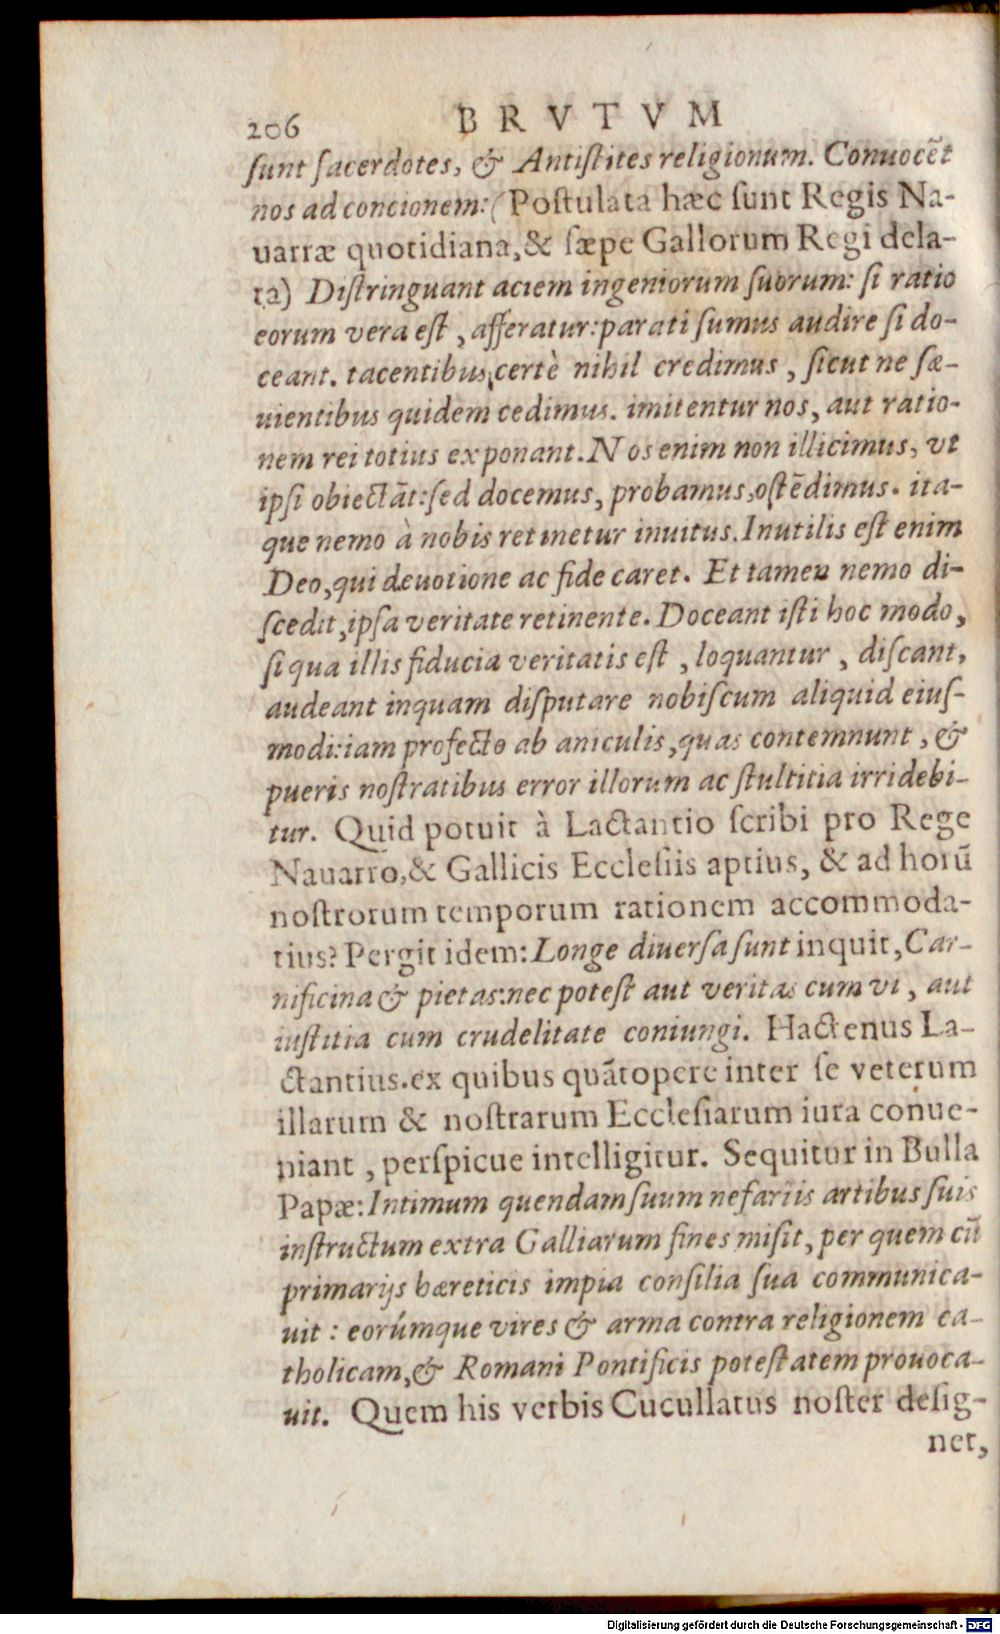 206 BRVTVM
ſunt ſacerdotes, & Antiſtites religionum. Conuocẽt
nos ad concionem: (Poſtulata hæc ſunt Regis Na-
uarræ quotidiana, & ſæpe Gallorum Regi dela-
ta) Diſtringuant aciem ingeniorum ſuorum: ſi ratio
eorum vera eſt, afferatur: parati ſumus audire ſi do-
ceant. tacentibus certè nihil credimus, ſicut ne ſæ-
uientibus quidem cedimus. imitentur nos, aut ratio-
nem rei totius exponant. Nos enim non illicimus, vt
ipſi obiectãt: ſed docemus, probamus, oſtẽdimus. ita-
que nemo à nobis retinetur inuitus. Inutilis eſt enim
Deo, qui deuotione ac fide caret. Et tamen nemo di-
ſcedit, ipſa veritate retinente. Doceant iſti hoc modo,
ſi qua illis fiducia veritatis eſt, loquantur, diſcant,
audeant inquam diſputare nobiſcum aliquid eiuſ-
modi: iam profecto ab aniculis, quas contemnunt, &
pueris noſtratibus error illorum ac ſtultitia irridebi-
tur. Quid potuit à Lactantio ſcribi pro Rege
Nauarro, & Gallicis Eccleſiis aptius, & ad horũ
noſtrorum temporum rationem accommoda-
tius? Pergit idem: Longe diuerſa ſunt inquit, Car-
nificina & pietas: nec poteſt aut veritas cum vi, aut
iuſtitia cum crudelitate coniungi. Hactenus La-
ctantius. ex quibus quãtopere inter ſe veterum
illarum & noſtrarum Eccleſiarum iura conue-
niant, perſpicue intelligitur. Sequitur in Bulla
Papæ: Intimum quendam ſuum nefariis artibus ſuis
inſtructum extra Galliarum fines miſit, per quem cũ
primarijs hæreticis impia conſilia ſua communica-
uit: eorúmque vires & arma contra religionem ca-
tholicam, & Romani Pontificis poteſtatem prouoca-
uit. Quem his verbis Cucullatus noſter deſig-
net,
Digitalisierung gefördert durch die Deutsche Forschungsgemeinschaft - DFG